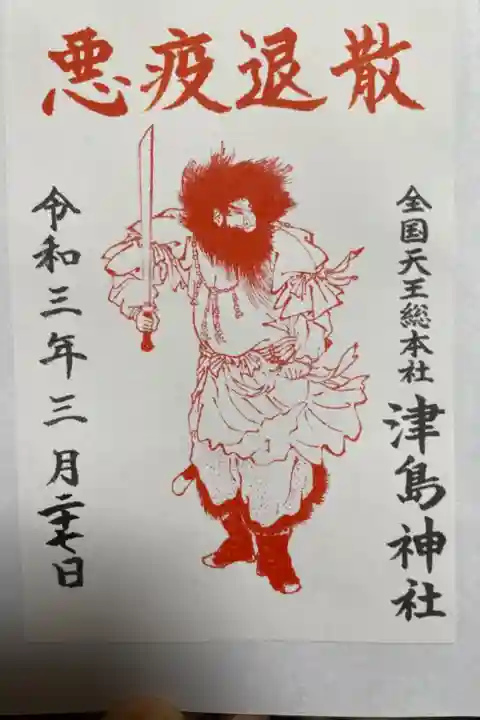 悪疫退散
全国天王総本社 津島神社
令和三年三月二十七日